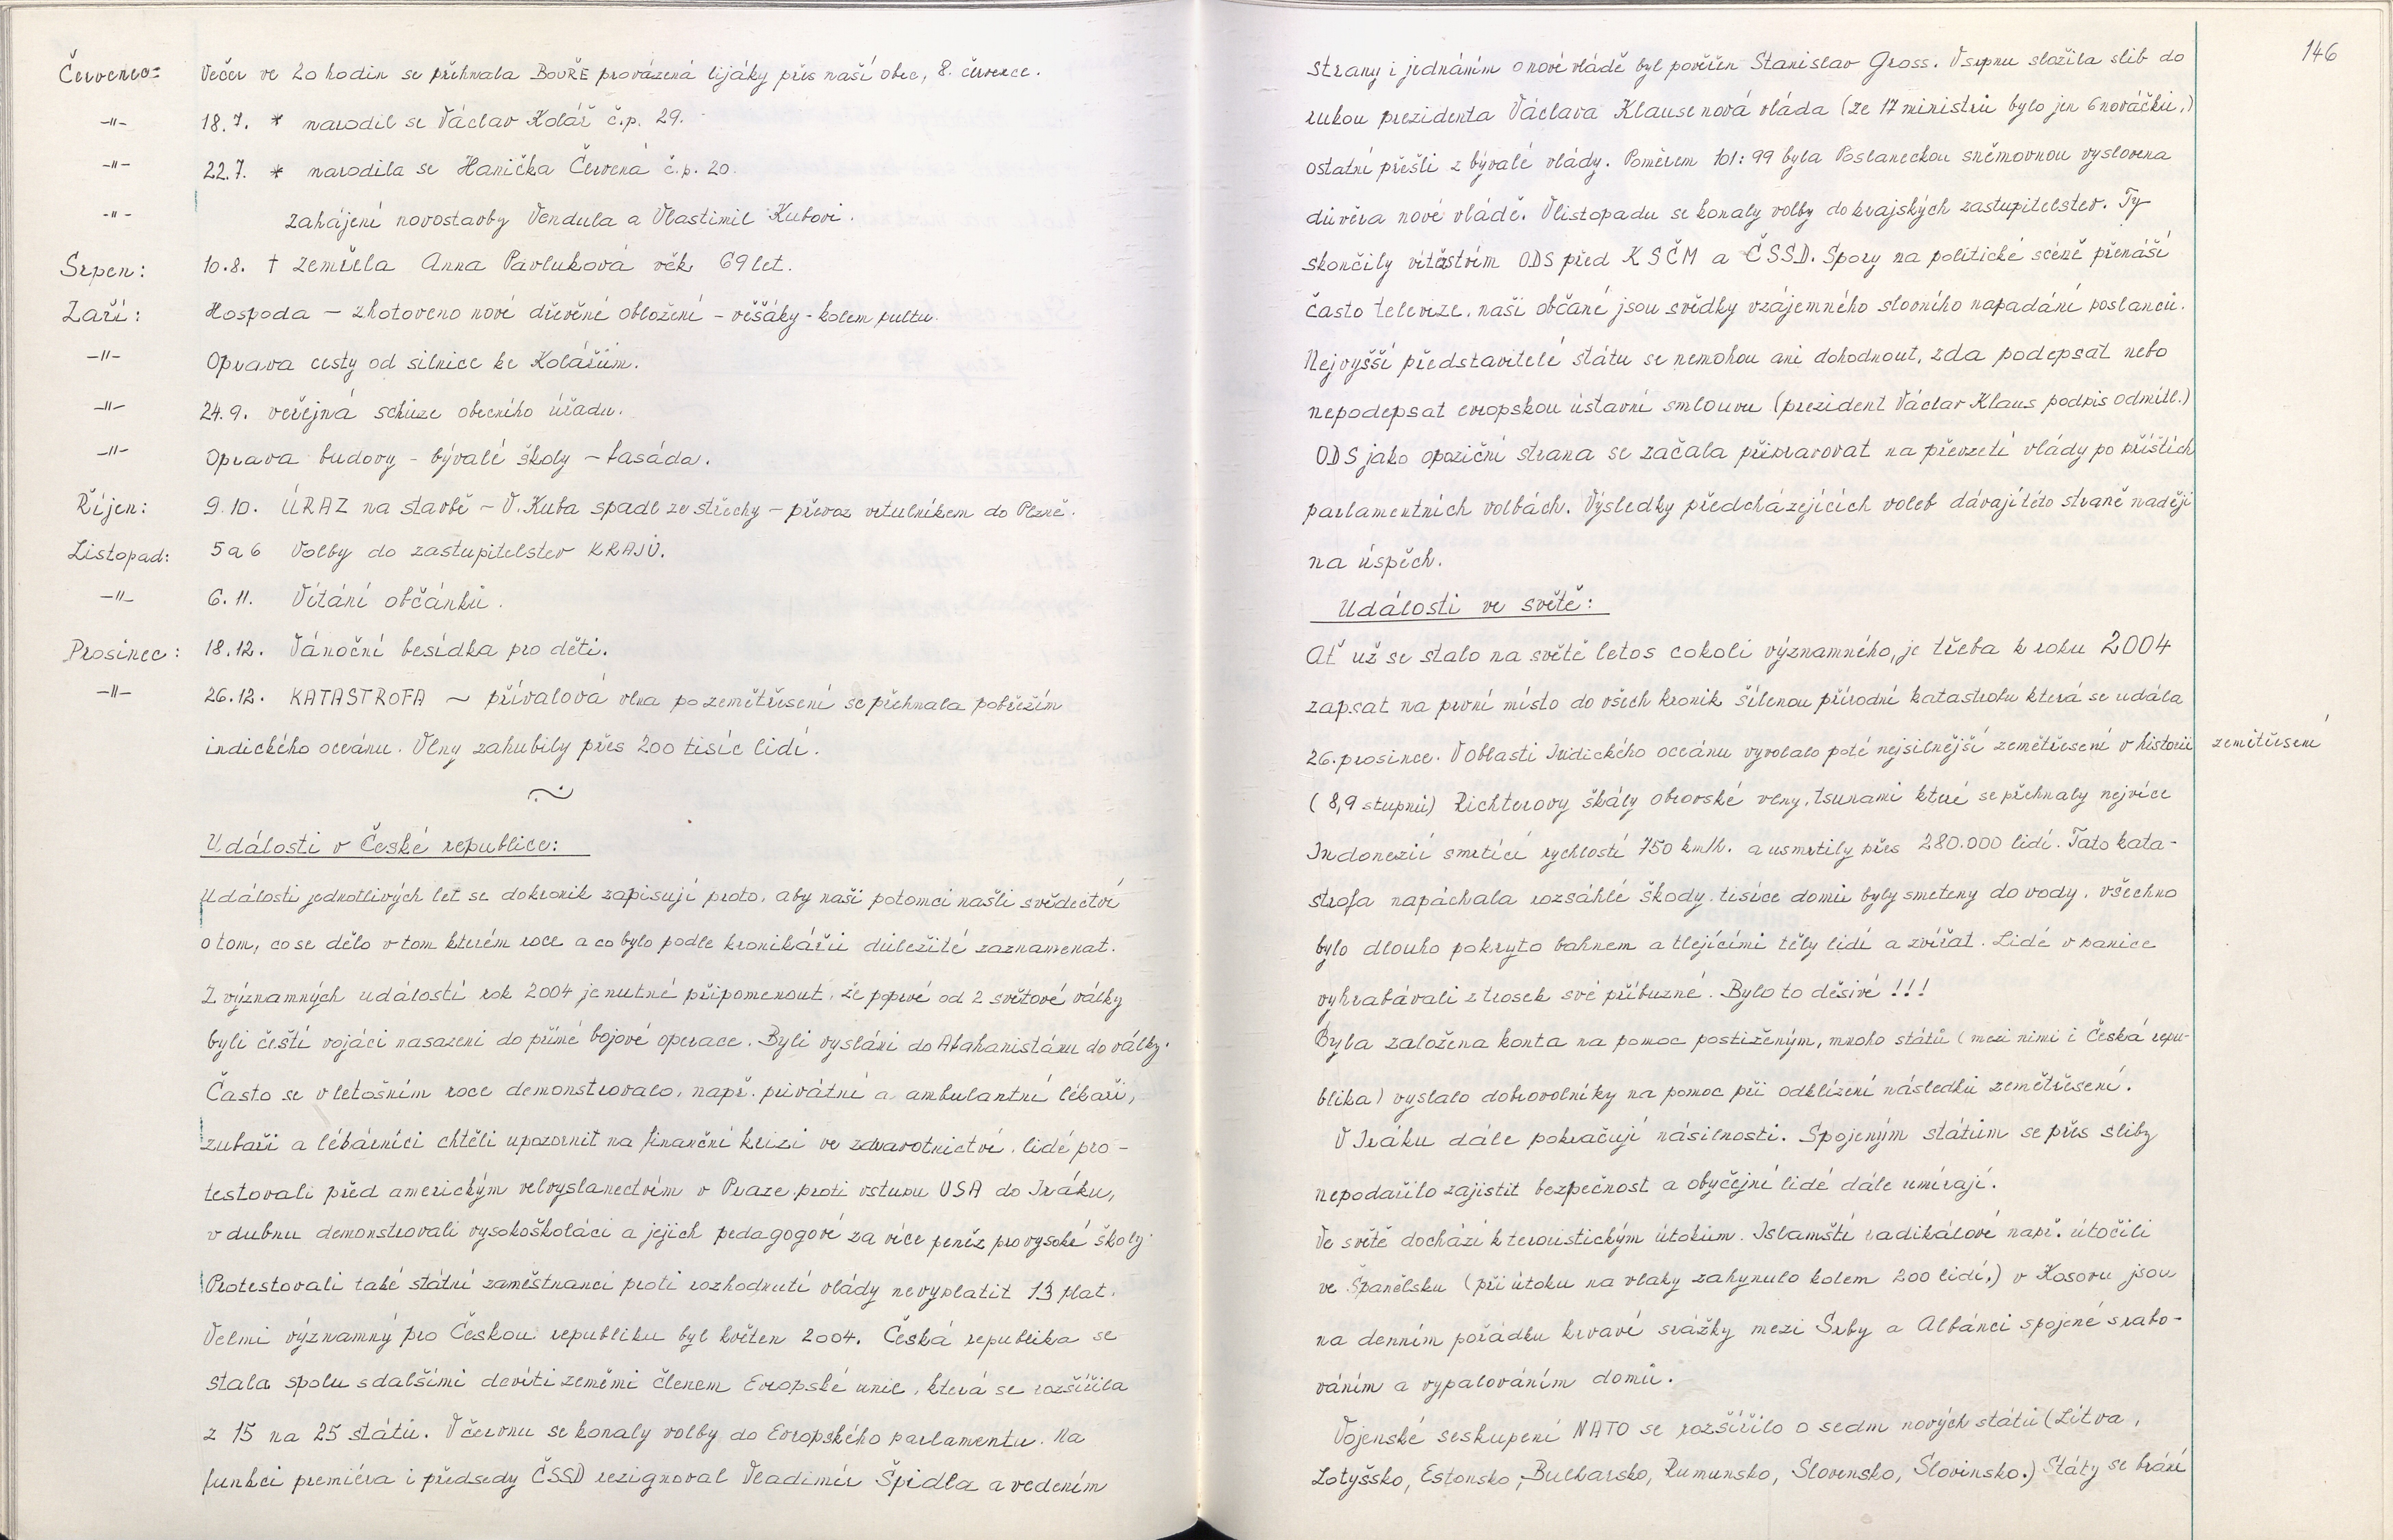 Červenec: Večer ve 20 hodin se přehnala BOUŘE provázená lijáky přes naší obec, 8. července.
-"- 18.7. * narodil se Václav Kolář č.p. 29.
-"- 22.7. * narodila se Hanička Červená č.p. 20.
-"- Zahájení novostavby Vendula a Vlastimil Kubovi.
Srpen: 10.8. † zemřela Anna Pavluková věk 69 let.
Září: Hospoda – zhotoveno nové dřevěné obložení – věšáky - kolem pultu.
-"- Oprava cesty od silnice ke Kolářům.
-"- 24.9. veřejná schůze obecního úřadu.
-"- Oprava budovy - bývalé školy – fasáda.
Říjen: 9.10. ÚRAZ na stavbě – V. Kuba spadl ze střechy – převoz vrtulníkem do Plzně.
Listopad: 5 a 6 Volby do zastupitelstev KRAJŮ.
-"- 6.11. Vítání občánků.
Prosinec: 18.12. Vánoční besídka pro děti.
-"- 26.12. KATASTROFA ~ přívalová vlna po zemětřesení se přehnala pobřežím
indického oceánu. Vlny zahubily přes 200 tisíc lidí.
Události v České republice:
Události jednotlivých let se do kronik zapisují proto, aby naši potomci našli svědectví
o tom, co se dělo v tom kterém roce a co bylo podle kronikářů důležité zaznamenat.
Z významných událostí rok 2004 je nutné připomenout, že poprvé od 2 světové války
byli čeští vojáci nasazeni do přímé bojové operace. Byli vysláni do Afahanistánu do války.
Často se v letošním roce demonstrovalo, např. privátní a ambulantní lékaři,
zubaři a lékárníci chtěli upozornit na finanční krizi ve zdravotnictví, lidé pro-
testovali před americkým velvyslanectvím v Praze proti vstupu USA do Iráku,
v dubnu demonstrovali vysokoškoláci a jejich pedagogové za více peněz pro vysoké školy.
Protestovali také státní zaměstnanci proti rozhodnutí vlády nevyplatit 13 plat.
Velmi významný pro Českou republiku byl květen 2004. Česká republika se
stala spolu s dalšími devíti zeměmi členem Evropské unie, která se rozšířila
z 15 na 25 států. V červnu se konaly volby do Evropského parlamentu. Na
funkci premiéra i předsedy ČSSD rezignoval Vladimír Špidla a vedením
146
strany i jednáním o nové vládě byl pověřen Stanislav Gross. V srpnu složila slib do
rukou prezidenta Václava Klause nová vláda (ze 17 ministrů bylo jen 6 nováčků,)
ostatní přešli z bývalé vlády. Poměrem 101:99 byla Poslaneckou sněmovnou vyslovena
důvěra nové vládě. V listopadu se konaly volby do krajských zastupitelstev. Ty
skončily vítěstvím ODS před KSČM a ČSSD. Spory na politické scéně přenáší
často televize, naši občané jsou svědky vzájemného slovního napadání poslanců.
Nejvyšší představitelé státu se nemohou ani dohodnout, zda podepsat nebo
nepodepsat evropskou ústavní smlouvu (prezident Václav Klaus podpis odmítl.)
ODS jako opoziční strana se začala připravovat na převzetí vlády po příštích
parlamentních volbách. Výsledky předcházejících voleb dávají této straně naději
na úspěch.
Události ve světě:
Ať už se stalo na světě letos cokoli významného, je třeba k roku 2004
zapsat na první místo do všech kronik šílenou přírodní katastrofu která se udála
26. prosince. V oblasti Indického oceánu vyvolalo páté nejsilnější zemětřesení v historii zemětřesení
(8,9 stupňů) Richterovy škály obrovské vlny, tsunami které se přehnaly nejvíce
Indonezií smrtící rychlostí 750 km/h. a usmrtily přes 280.000 lidí. Tato kata-
strofa napáchala rozsáhlé škody, tisíce domů byly smeteny do vody, všechno
bylo dlouho pokryto bahnem a tlejícími těly lidí a zvířat. Lidé v panice
vyhrabávali z trosek své příbuzné. Bylo to děsivé !!!
Byla založena konta na pomoc postiženým, mnoho států (mezi nimi i Česká repu-
blika) vyslalo dobrovolníky na pomoc při odklízení následků zemětřesení.
V Iráku dále pokračují násilnosti. Spojeným státům se přes sliby
nepodařilo zajistit bezpečnost a obyčejní lidé dále umírají.
Ve světě dochází k teroristickým útokům. Islamští radikálové např. útočili
ve Španělsku (při útoku na vlaky zahynulo kolem 200 lidí,) v Kosovu jsou
na denním pořádku krvavé srážky mezi Srby a Albánci spojené s rabo-
váním a vypalováním domů.
Vojenské seskupení NATO se rozšířilo o sedm nových států (Litva,
Lotyšsko, Estonsko, Bulharsko, Rumunsko, Slovensko, Slovinsko.) Státy se brání